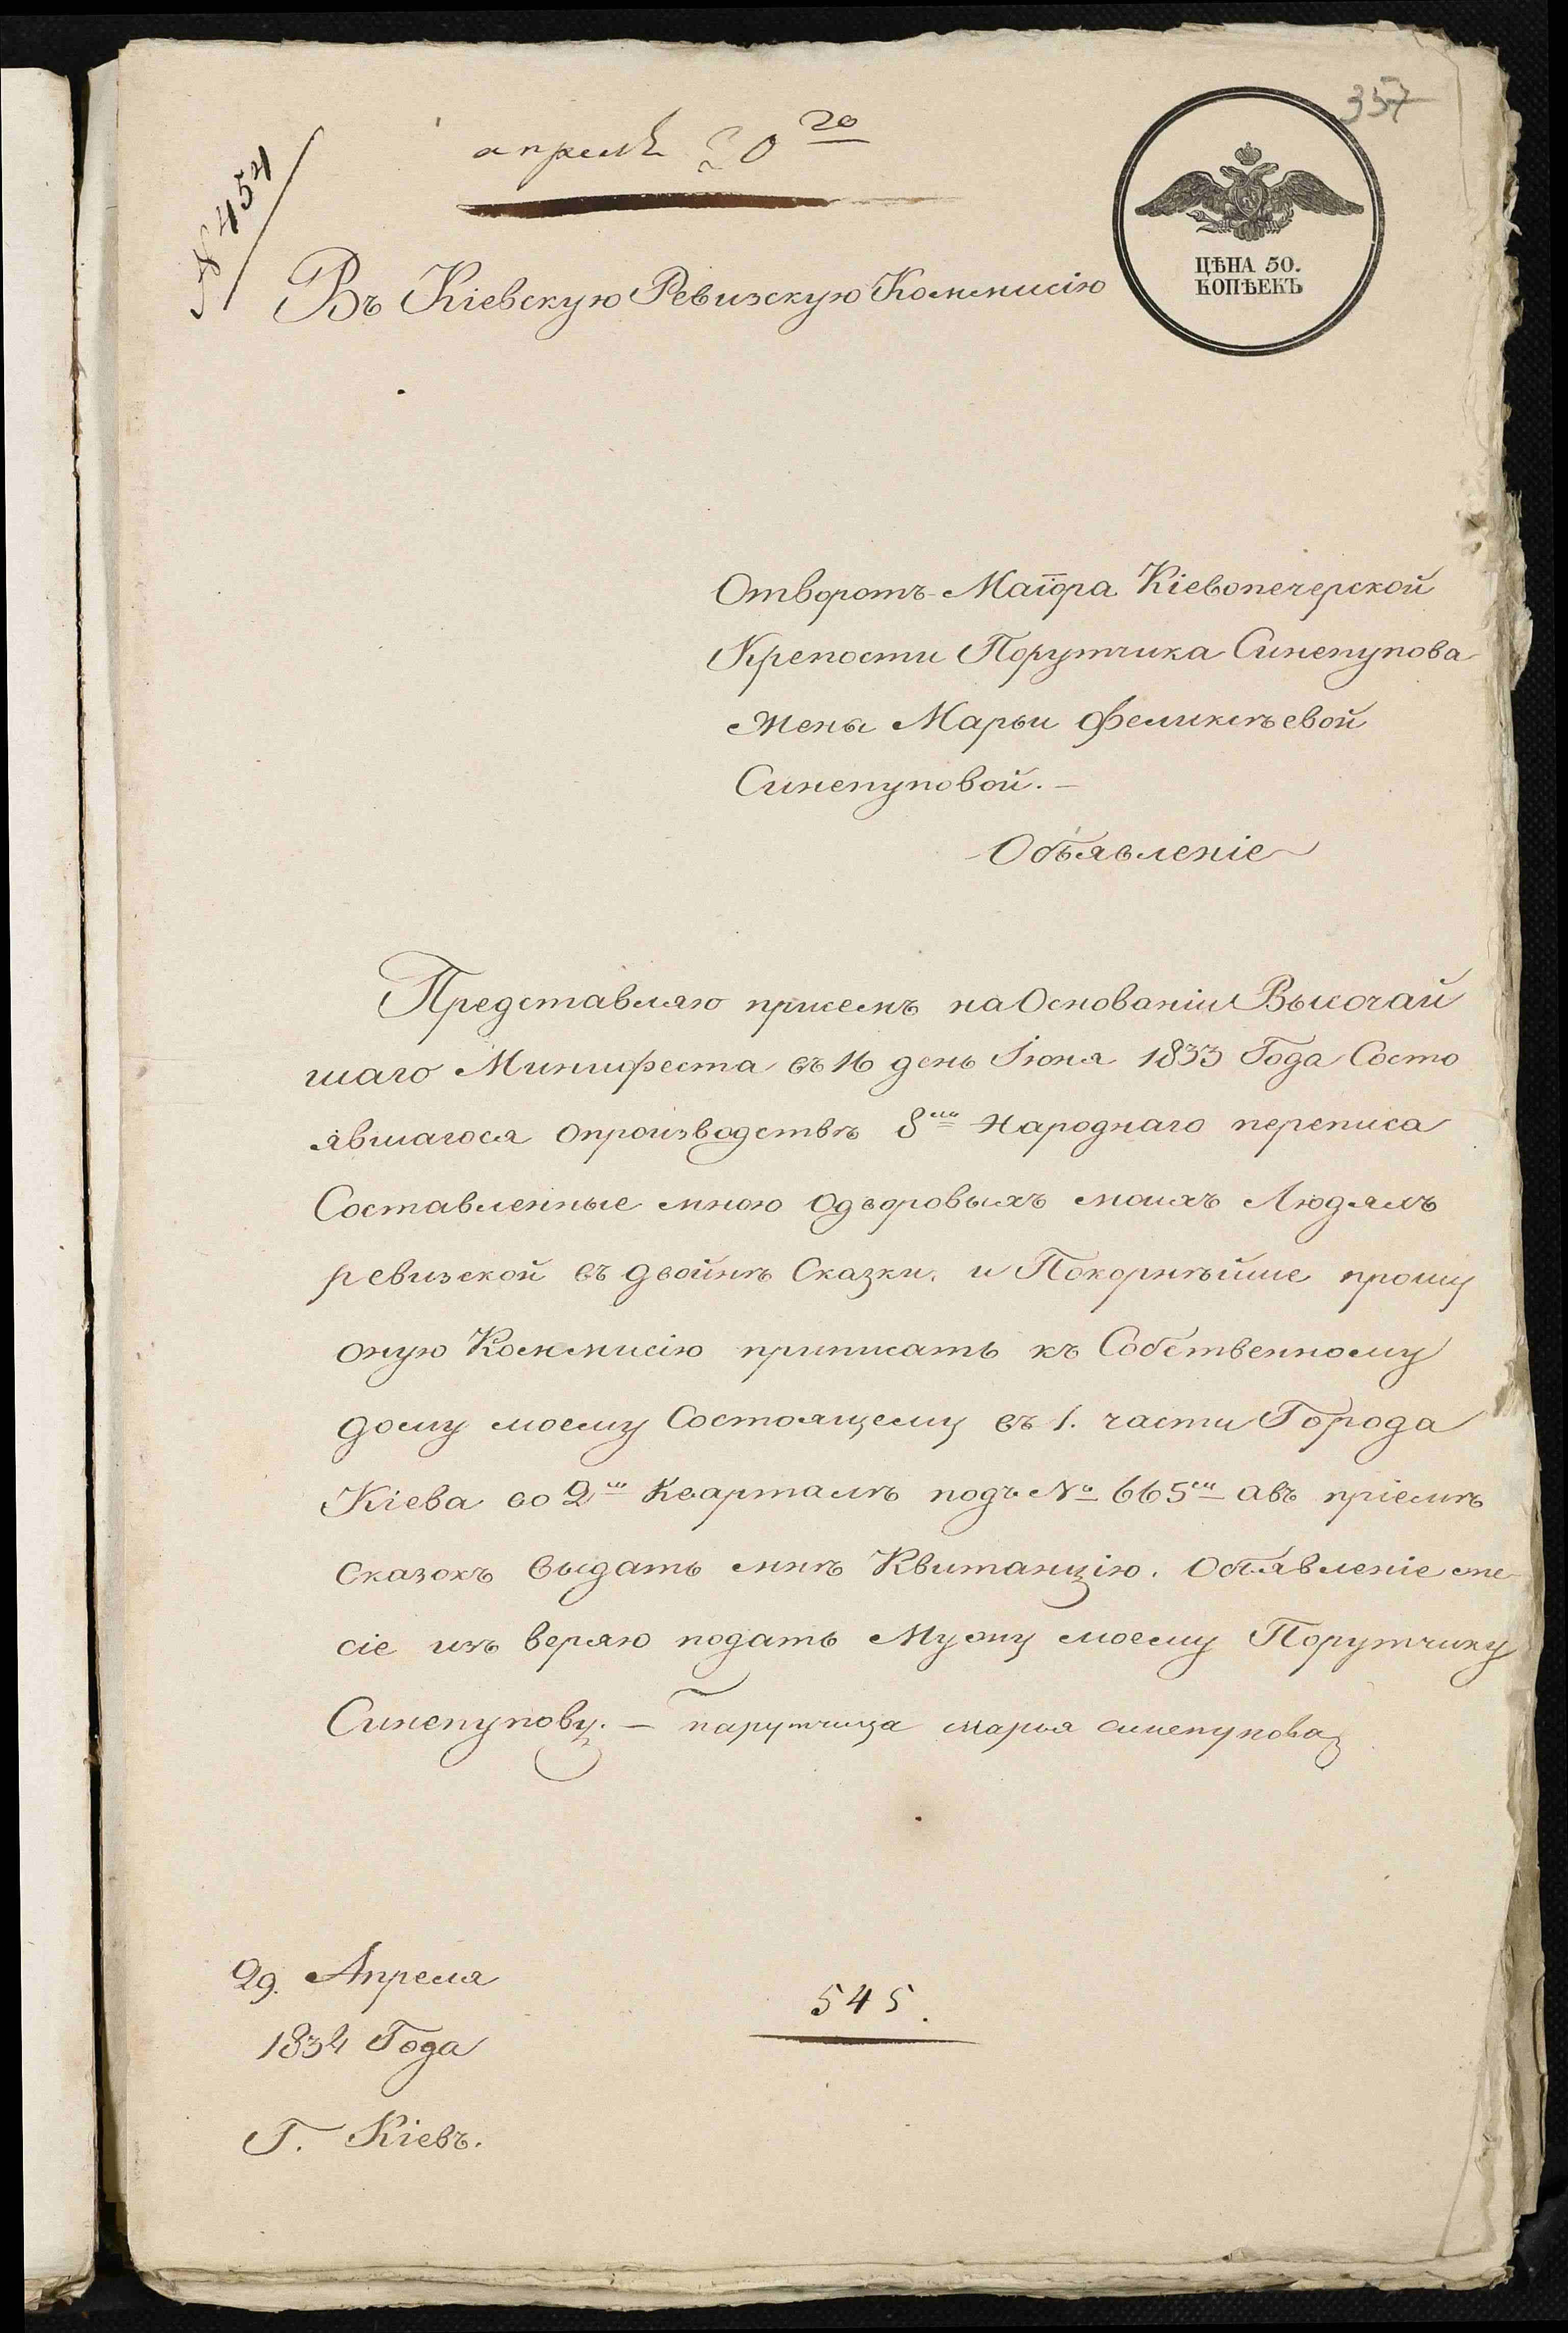 357
№ 454
апреля 30го
ЦѢНА 50.
КОПѢЕКЪ
Въ Кіевскую Ревизскую Коммисію
Отворотъ-Маіора Кіевопечерской
Крепости Порутчика Синепупова
жены Марьи Феликсъевой
Синепуповой. —
Объявленіе
Представляю присемъ на Основаніи Высочай
шаго Минифеста въ 16 день Іюня 1833 Года Состо
явшагося опроизводствѣ 8й Народнаго переписа
Составленные мною Одворовыхъ моихъ Людямъ
ревизской въ двойнѣ Сказки. и Покорнѣйше прошу
оную Коммисію приписать къ Собственному
дому моему Состоящему въ 1. части Города
Кіева во 2м Кварталѣ подъ № 665м авъ пріемѣ
сказокъ выдать мнѣ Квитанцію. Объявленіе же
сіе уцъ веряю подать Мужу моему Порутчику
Синепупову. — парутчица марья синепупова
29. Апреля
1834 Года
Г. Кіевъ.
545.